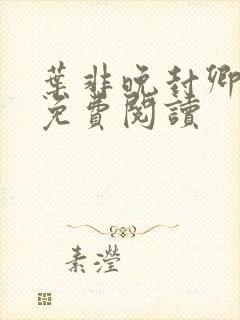 葉非晚封卿
免費閱讀
素瀅